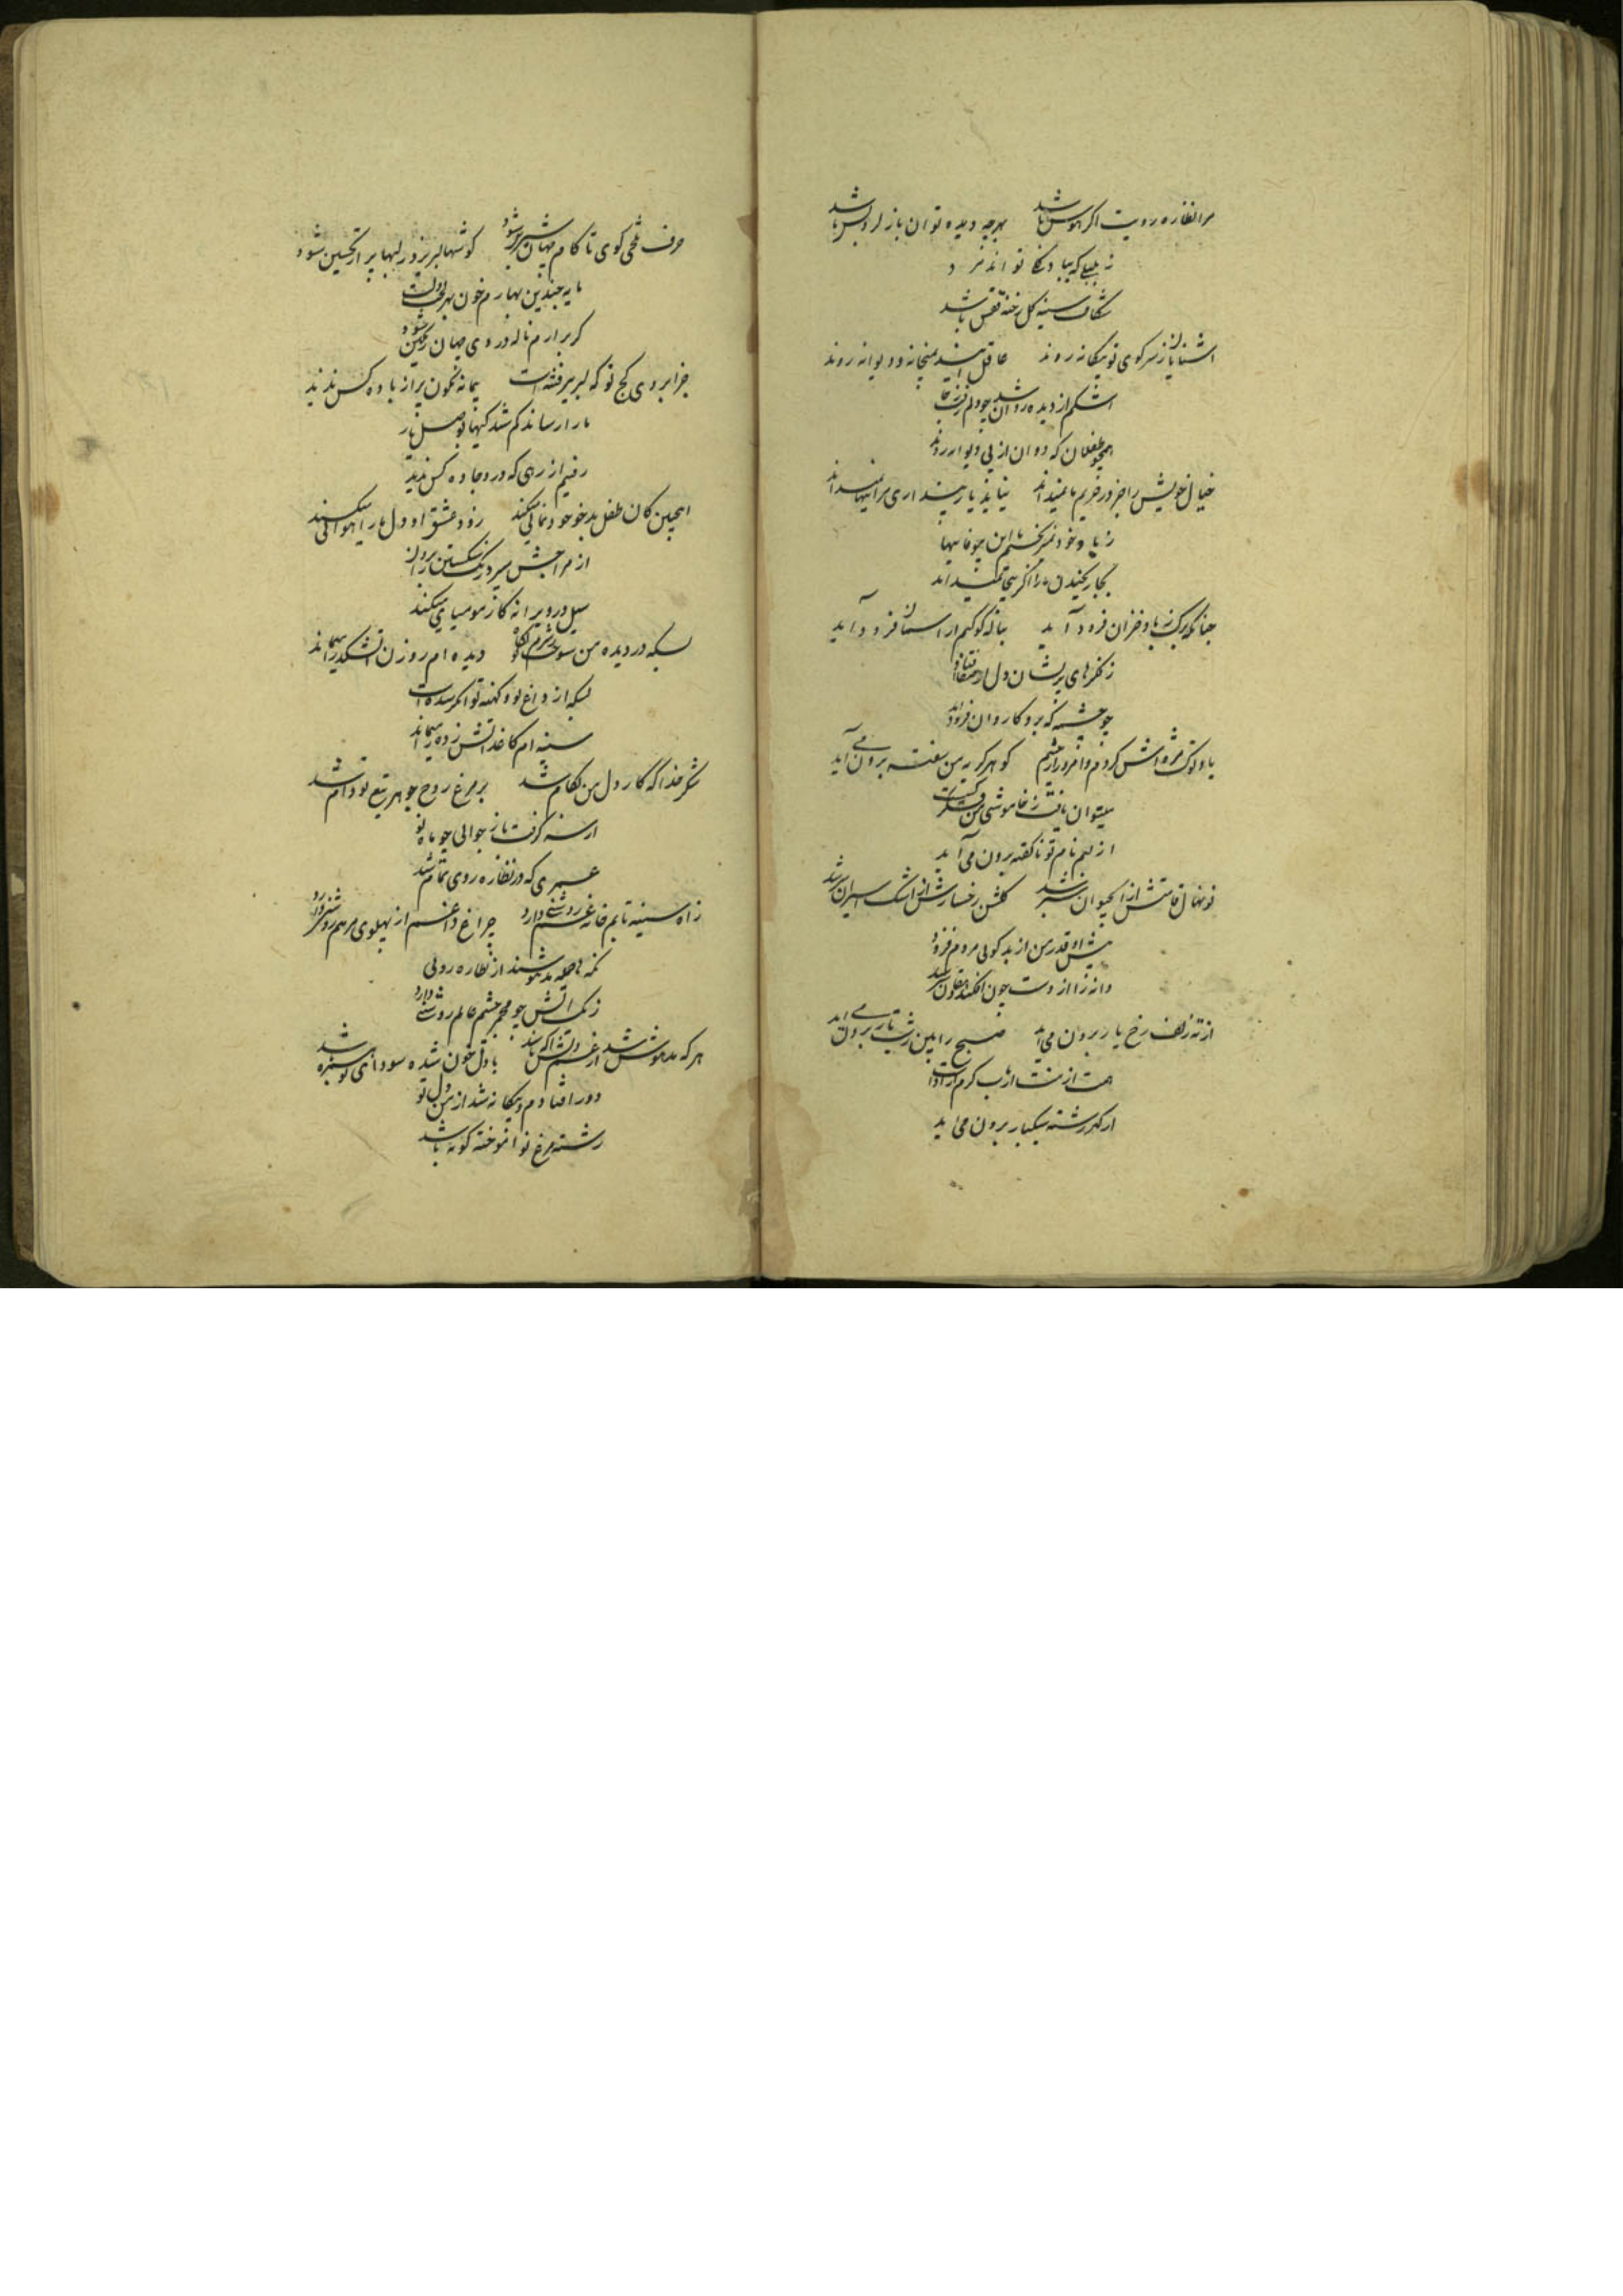 مرا نظاره رویت اگر هوس باشد بهر چه دیده توان باز کرد بس باشد
ز بلبلی که بیاد تواند مرد
شکاف سینه گل رخنه قفس باشد
اشنایان ز سر کوی تو بیکانه روند عاقل ایند بمیخانه و دیوانه روند
اشکم از دیده روان شد چو دلم رفت
همچو طفلان که دوان از پی دیوانه روند
خیال خویش را جز در حریم ما نمیداند نیاید یار پنداری سرا تنها نمیداند
ز یاد خود نمیرنجم با این
بجا رنجیدن ما را اگر بیجا نمیداند
چنانکه برک ز باد خزان فرود آید بناله کوکبم از اسمان فرود آید
ز فکرهای پریشان دل
چو چشمه که برو کاروان فرود آید
یاد نوک مژه اش کردم و امروز از چشم کوهر کریه من سفته برون می آید
میتوان یافت ز خاموشی من
از لبم نام تو ناکفته برون می آید
نونهال قامتش از آب حیوان سبز شد کلشن رخسارش از اشک اسیران سبز شد
بیش شد قدر من از بدکویی مردم فزود
دانه را از دست چون افکند دهقان سبز شد
از ته زلف رخ یار برون می آید صبح را بین ز شب تار برون می آید
همت از منت ارباب کرم
از کهر رشته سبکبار برون می آید
حرف تلخی کوی تا کام جهان شیرین شود کوشها لبریز در لبها پر از تحسین شود
مایه چندین بهارم خون
کر برارم ناله روی جهان رنکین شود
جز ابروی کج تو که لبریز فتنه است پیمانه نکون پر از باده کس ندید
ما را رساند کم شدکیها بوصل یار
رفتیم از رهی که درو جاده کس ندید
اینچنین کان طفل بدخو خودنمایی میکند زود عشق او دل ما را هوایی میکند
از مزاجش میبرد رنک شکستن را
سیل در ویرانه کار مومیایی میکند
بسکه در دیده من سوخت نکاه دیده ام روزن آتشکده را میماند
بسکه از داغ نو و کهنه توانکر شده است
سینه ام کاغذ آتش زده را میماند
شکر خدا که کار دل من بکام شد بر مرغ روح جوهر تیغ تو دام شد
از سر کرفت باز جوانی چو ماه نو
عمری که در نظاره روی تمام شد
ز اه سینه تابم خانه غم روشنی دارد چراغ داغم از پهلوی مرهم روشنی دارد
نکه ها جمله مدهوشند از نظاره رویی
ز یک آتش چو مجمر چشم عالم روشنی دارد
هر که مدهوش شد از غم دلش اکه باشد با دل خون شده سودای تو همره باشد
دور افتادم و بیکانه نشد از من دل تو
رشته مرغ نواموخته کوته باشد